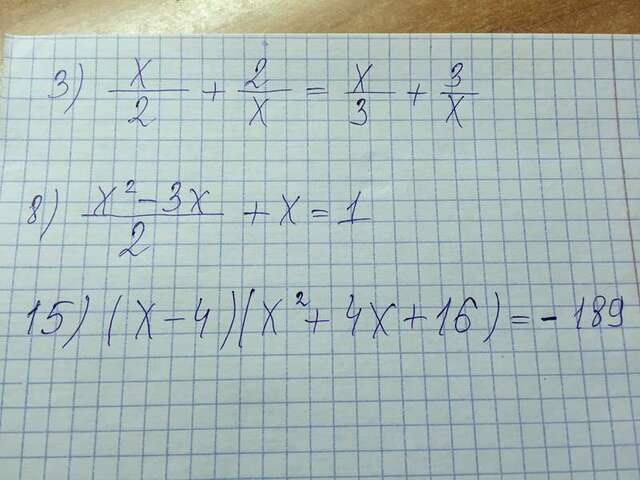 3) x/2 + 2/x = x/3 + 3/x
8) (x² - 3x)/2 + x = 1
15) (x - 4)(x² + 4x + 16) = - 189